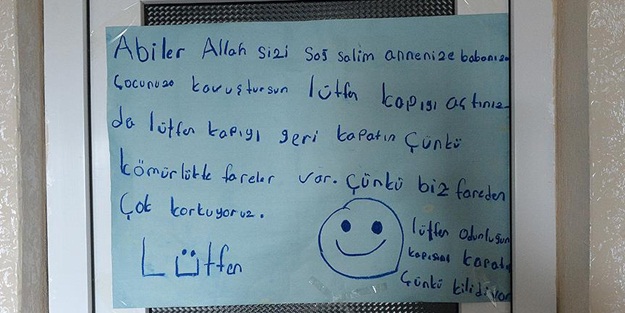 Abiler Allah sizi sağ salim annenize babanıza
çocunuza kavuştursun lütfen kapıyı açtınız
da lütfen kapıyı geri kapatın Çünkü
kömürlükte fareler var. Çünkü biz fareden
Çok korkuyoruz.
Lütfen
lütfen odunluğun
kapısını kapatın
Çünkü kilidi yok